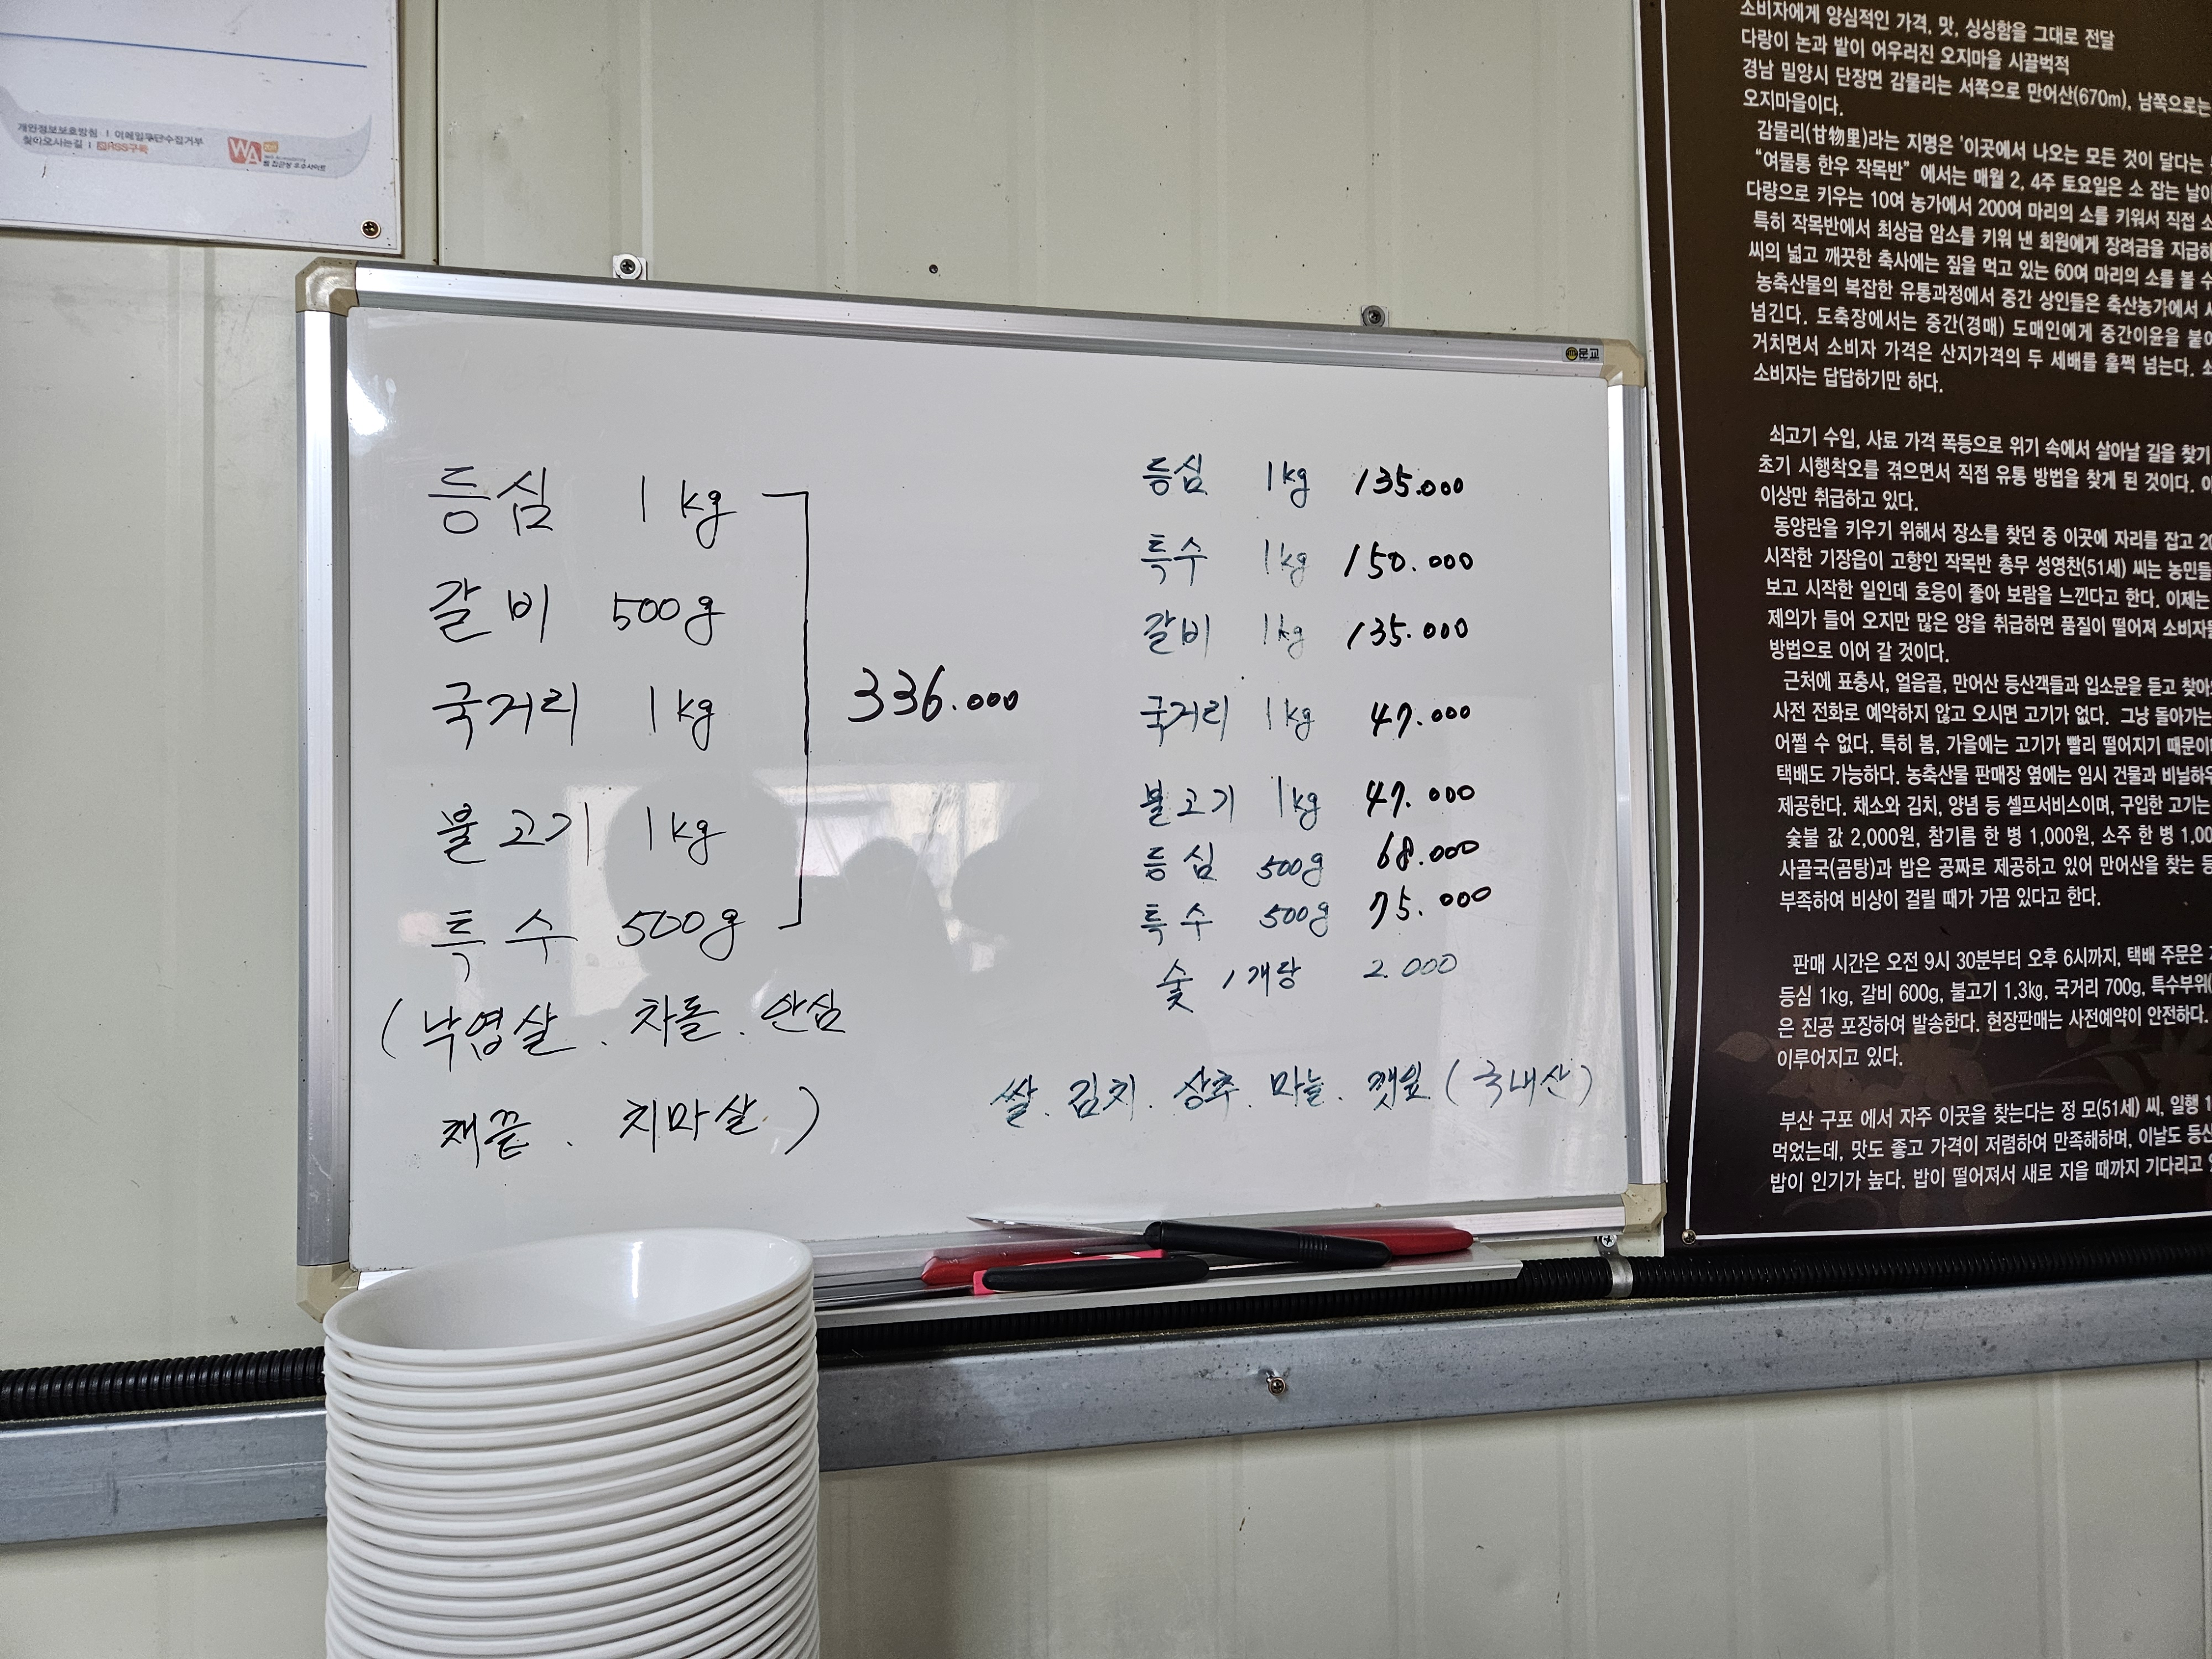 개인정보보호방침 | 이메일무단수집거부
찾아오시는길 | RSS구독
WA
웹 접근성 우수사이트
문교
등심 1kg
갈비 500g
국거리 1kg
불고기 1kg
특수 500g
336.000
(낙엽살. 차돌. 안심
채끝. 치마살)
등심 1kg 135.000
특수 1kg 150.000
갈비 1kg 135.000
국거리 1kg 47.000
불고기 1kg 47.000
등심 500g 68.000
특수 500g 75.000
숯 1개당 2.000
쌀. 김치. 상추. 마늘. 깻잎(국내산)
소비자에게 양심적인 가격, 맛, 싱싱함을 그대로 전달
다랑이 논과 밭이 어우러진 오지마을 시끌벅적
경남 밀양시 단장면 감물리는 서쪽으로 만어산(670m), 남쪽으로는
오지마을이다.
감물리(甘物里)라는 지명은 '이곳에서 나오는 모든 것이 달다는
“여물통 한우 작목반” 에서는 매월 2, 4주 토요일은 소 잡는 날
다량으로 키우는 10여 농가에서 200여 마리의 소를 키워서 직접
특히 작목반에서 최상급 암소를 키워 낸 회원에게 장려금을 지급하
씨의 넓고 깨끗한 축사에는 짚을 먹고 있는 60여 마리의 소를 볼
농축산물의 복잡한 유통과정에서 중간 상인들은 축산농가에서
넘긴다. 도축장에서는 중간(경매) 도매인에게 중간이윤을 붙
거치면서 소비자 가격은 산지가격의 두 세배를 훌쩍 넘는다.
소비자는 답답하기만 하다.
쇠고기 수입, 사료 가격 폭등으로 위기 속에서 살아날 길을 찾기
초기 시행착오를 겪으면서 직접 유통 방법을 찾게 된 것이다.
이상만 취급하고 있다.
동양란을 키우기 위해서 장소를 찾던 중 이곳에 자리를 잡고 20
시작한 기장읍이 고향인 작목반 총무 성영찬(51세) 씨는 농민들
보고 시작한 일인데 호응이 좋아 보람을 느낀다고 한다. 이제는
제의가 들어 오지만 많은 양을 취급하면 품질이 떨어져 소비자
방법으로 이어 갈 것이다.
근처에 표충사, 얼음골, 만어산 등산객들과 입소문을 듣고 찾아
사전 전화로 예약하지 않고 오시면 고기가 없다. 그냥 돌아가는
어쩔 수 없다. 특히 봄, 가을에는 고기가 빨리 떨어지기 때문이
택배도 가능하다. 농축산물 판매장 옆에는 임시 건물과 비닐하우
제공한다. 채소와 김치, 양념 등 셀프서비스이며, 구입한 고기는
숯불 값 2,000원, 참기름 한 병 1,000원, 소주 한 병 1,00
사골국(곰탕)과 밥은 공짜로 제공하고 있어 만어산을 찾는 등
부족하여 비상이 걸릴 때가 가끔 있다고 한다.
판매 시간은 오전 9시 30분부터 오후 6시까지, 택배 주문은
등심 1kg, 갈비 600g, 불고기 1.3kg, 국거리 700g, 특수부위(
은 진공 포장하여 발송한다. 현장판매는 사전예약이 안전하다.
이루어지고 있다.
부산 구포 에서 자주 이곳을 찾는다는 정 모(51세) 씨, 일행 1
먹었는데, 맛도 좋고 가격이 저렴하여 만족해하며, 이날도 등산
밥이 인기가 높다. 밥이 떨어져서 새로 지을 때까지 기다리고